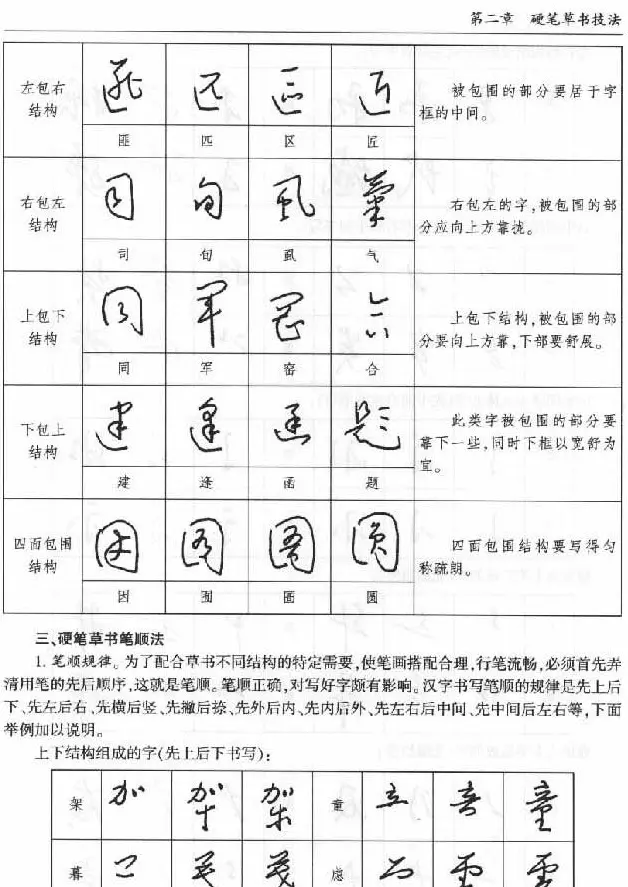 第二章 硬笔草书技法
左包右
结构
匪 匹 区 匠
被包围的部分要居于字
框的中间。
右包左
结构
司 旬 虱 气
右包左的字,被包围的部
分应向上方靠拢。
上包下
结构
同 军 合
上包下结构,被包围的部
分要向上方靠,下部要舒展。
下包上
结构
建 逢 函 题
此类字被包围的部分要
靠下一些,同时下框以宽舒为
宜。
四面包围
结构
因 圆
四面包围结构要写得匀
称疏朗。
三、硬笔草书笔顺法
1. 笔顺规律。为了配合草书不同结构的特定需要,使笔画搭配合理,行笔流畅,必须首先弄
清用笔的先后顺序,这就是笔顺。笔顺正确,对写好字颇有影响。汉字书写笔顺的规律是先上后
下、先左后右、先横后竖、先撇后捺、先外后内、先内后外、先左右后中间、先中间后左右等,下面
举例加以说明。
上下结构组成的字(先上后下书写):
架 童
暮 虑